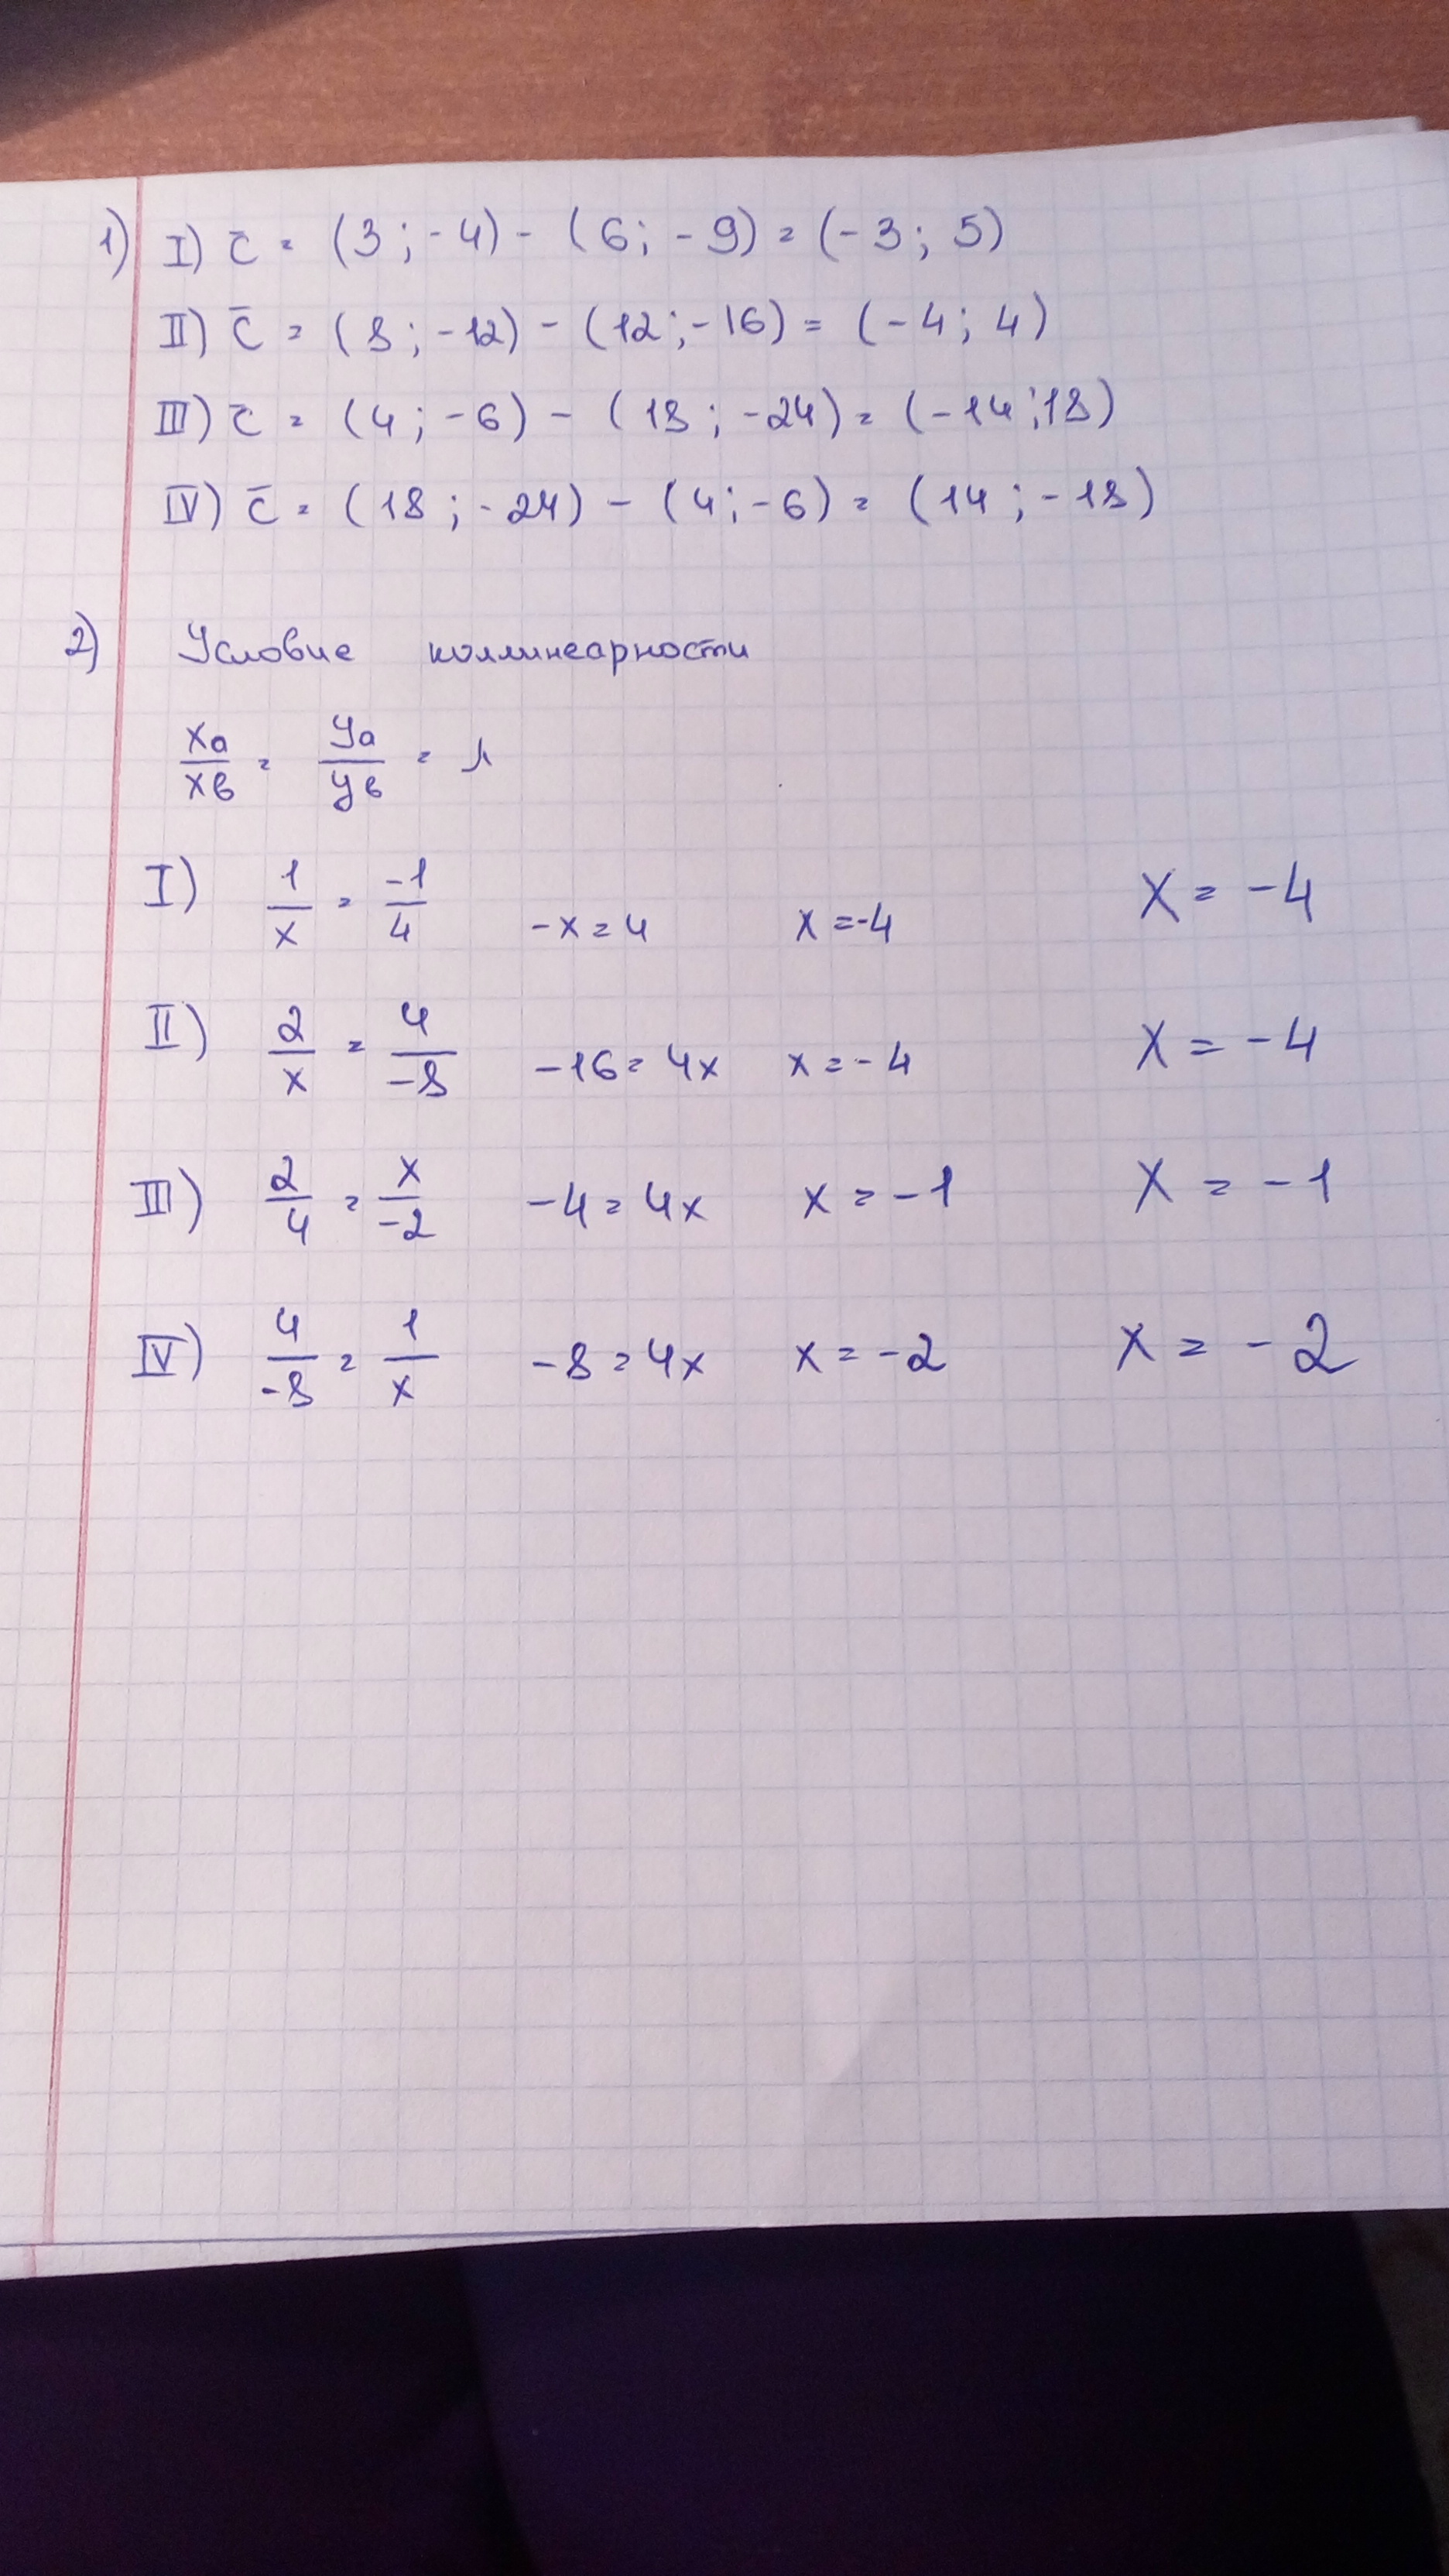 1) I) c̄ = (3 ; -4) - (6 ; -9) = (-3 ; 5)
II) c̄ = (8 ; -12) - (12 ; -16) = (-4 ; 4)
III) c̄ = (4 ; -6) - (18 ; -24) = (-14 ; 18)
IV) c̄ = (18 ; -24) - (4 ; -6) = (14 ; -18)
2) Условие коллинеарности
xa/xв = ya/yв = λ
I) 1/x = -1/4 -x = 4 x = -4 x = -4
II) 2/x = 4/-8 -16 = 4x x = -4 x = -4
III) 2/4 = x/-2 -4 = 4x x = -1 x = -1
IV) 4/-8 = 1/x -8 = 4x x = -2 x = -2